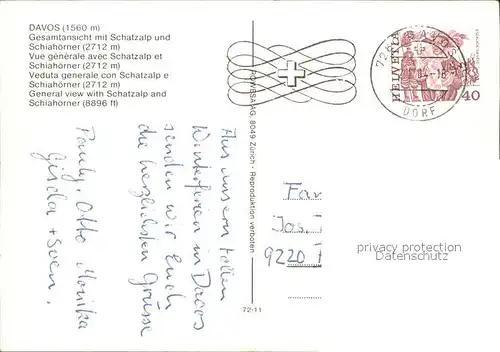 DAVOS (1560 m)
Gesamtansicht mit Schatzalp und
Schiahörner (2712 m)
Vue générale avec Schatzalp et
Schiahörner (2712 m)
Veduta generale con Schatzalp e
Schiahörner (2712 m)
General view with Schatzalp and
Schiahörner (8896 ft)
Aus unsern tollen
Winterferien in Davos
senden wir Euch
die herzlichsten Grüsse
Pauly, Otto Monika
Gisela + Sven.
8049 Zürich - Reproduktion verboten
72-11
DAVOS
DORF
HELVETIA
40
Fam
Jos.
9220
privacy protection
Datenschutz